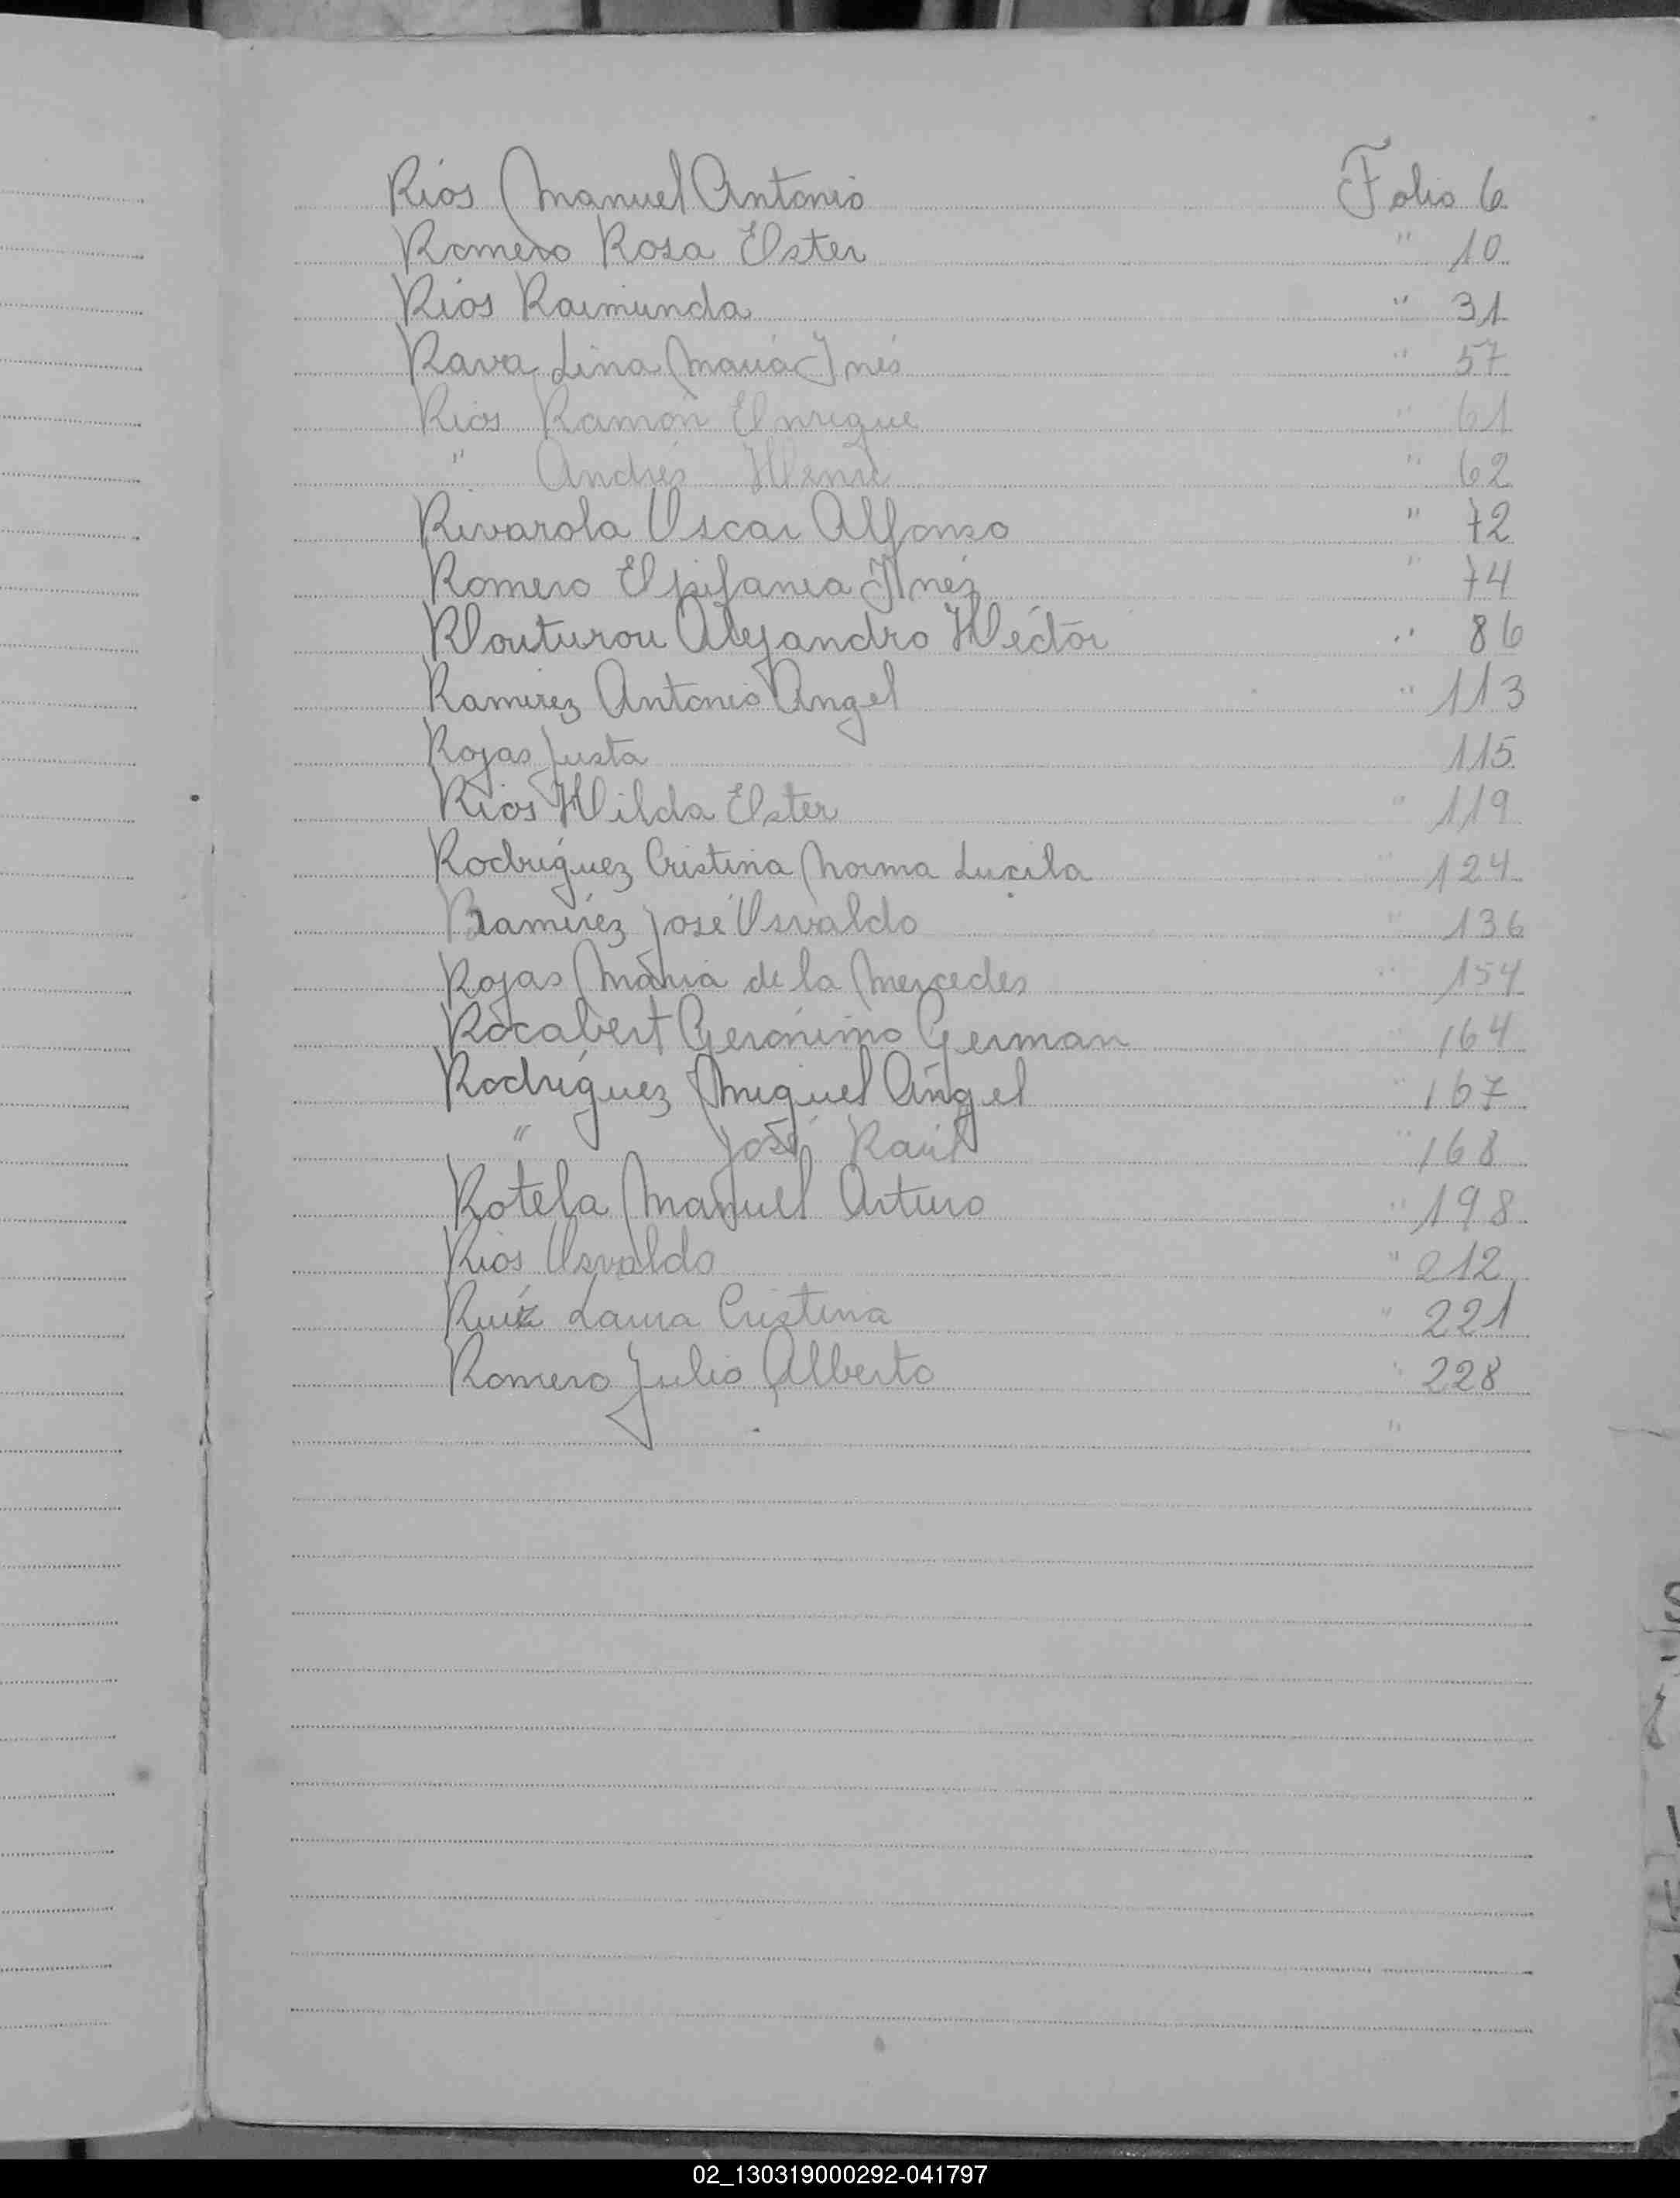 Rios Manuel Antonio Folio 6
Romero Rosa Ester " 10
Rios Raimunda " 31
Rava Lina Maria Inés " 57
Rios Ramón Enrique " 61
" Andrés Henri " 62
Rivarola Oscar Alfonso " 72
Romero Epifania Inéz " 74
Routurou Alejandro Héctor " 86
Ramirez Antonio Angel " 113
Rojas Justa 115
Rios Hilda Ester " 119
Rodriguez Cristina Norma Lucila " 124
Ramirez José Osvaldo " 136
Rojas Maria de la Mercedes " 154
Rocabert Gerónimo German " 164
Rodriguez Miguel Angel " 167
" José Raúl " 168
Rotela Manuel Arturo " 198
Rios Osvaldo " 212
Ruiz Laura Cristina " 221
Romero Julio Alberto " 228
"
02_130319000292-041797